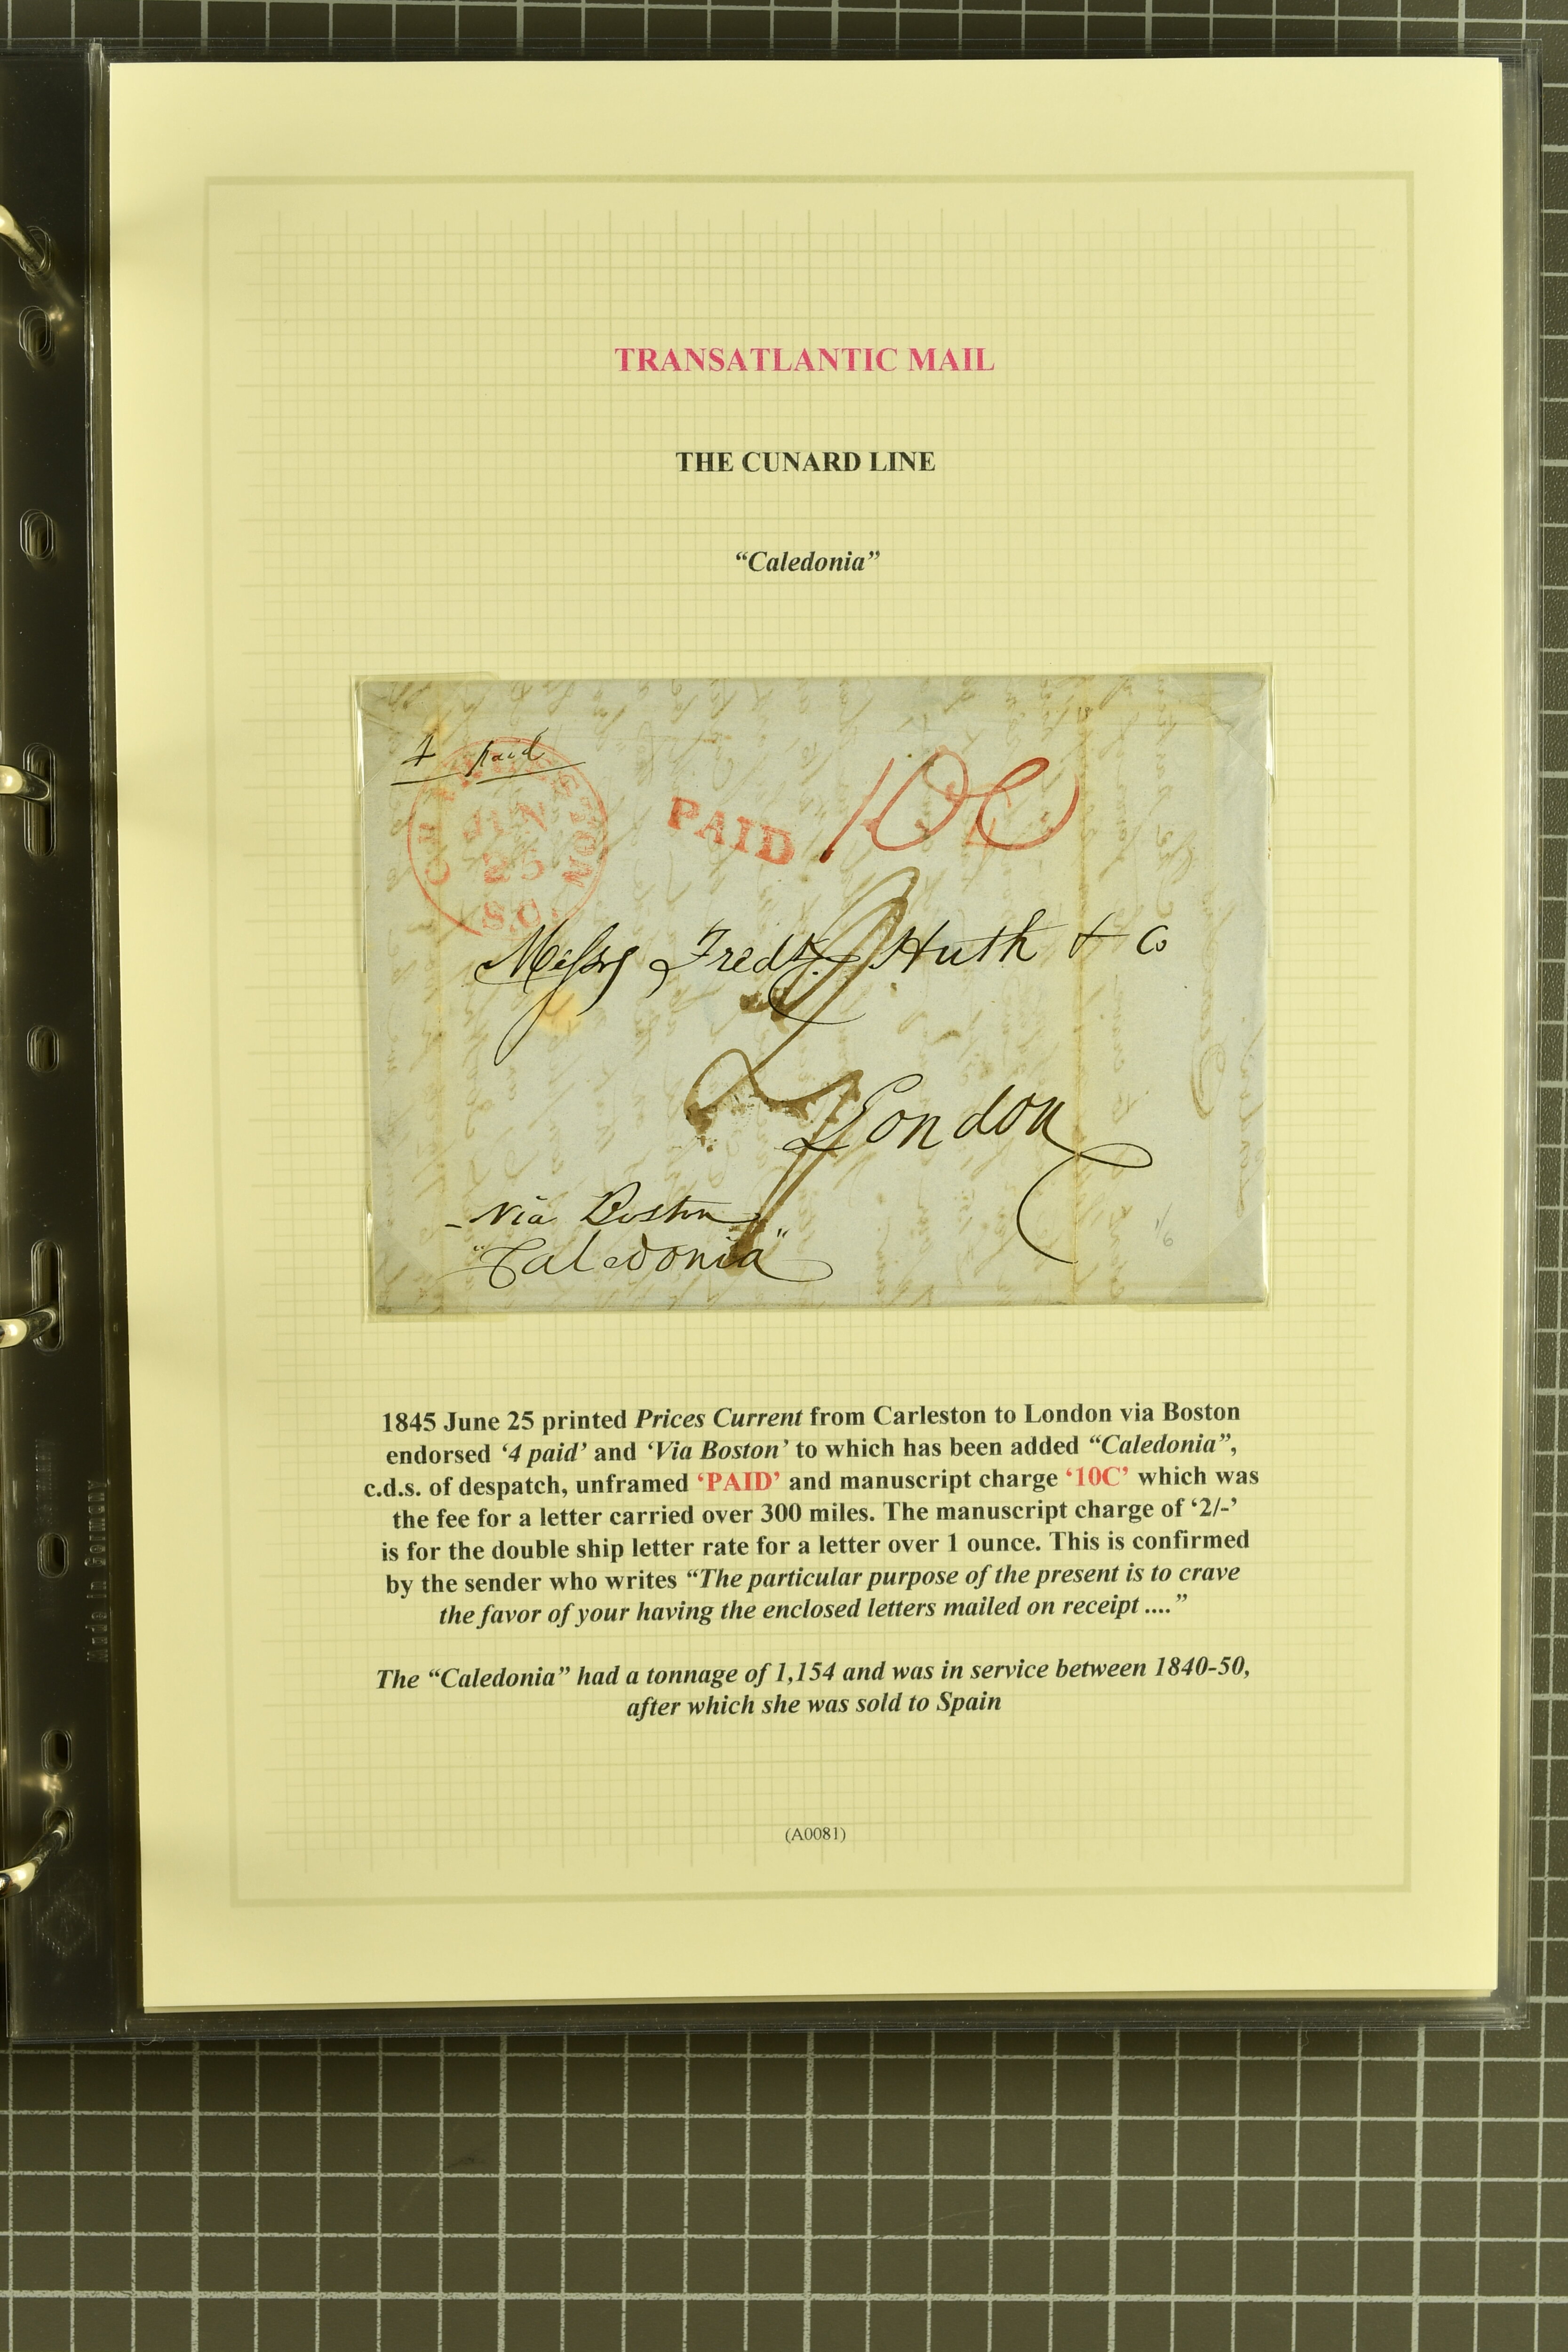 TRANSATLANTIC MAIL
THE CUNARD LINE
“Caledonia”
4 paid
CHARLESTON
JUN
25
S.C.
PAID
10 C
Messrs Fredk. Huth & Co
2/
London
- via Boston
"Caledonia"
1/6
1845 June 25 printed Prices Current from Carleston to London via Boston
endorsed ‘4 paid’ and ‘Via Boston’ to which has been added “Caledonia”,
c.d.s. of despatch, unframed ‘PAID’ and manuscript charge ‘10C’ which was
the fee for a letter carried over 300 miles. The manuscript charge of ‘2/-’
is for the double ship letter rate for a letter over 1 ounce. This is confirmed
by the sender who writes “The particular purpose of the present is to crave
the favor of your having the enclosed letters mailed on receipt ....”
The “Caledonia” had a tonnage of 1,154 and was in service between 1840-50,
after which she was sold to Spain
(A0081)
Made in Germany